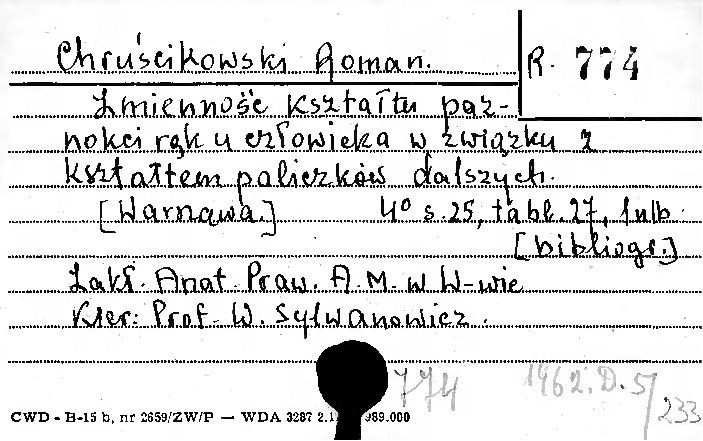 Chruścikowski Roman.
R. 774
Zmienność kształtu paz-
nokci rąk u człowieka w związku z
kształtem paliczków dalszych.
[Warszawa.] 4° s. 25, tabl. 27, 1 nlb.
[bibliogr.]
Zakł. Anat. Praw. A. M. w W-wie
Kier: Prof. W. Sylwanowicz.
774 1962. D. 5/233
CWD - H-15 b, nr 2659/ZW/P — WDA 3287 2.1 989.000